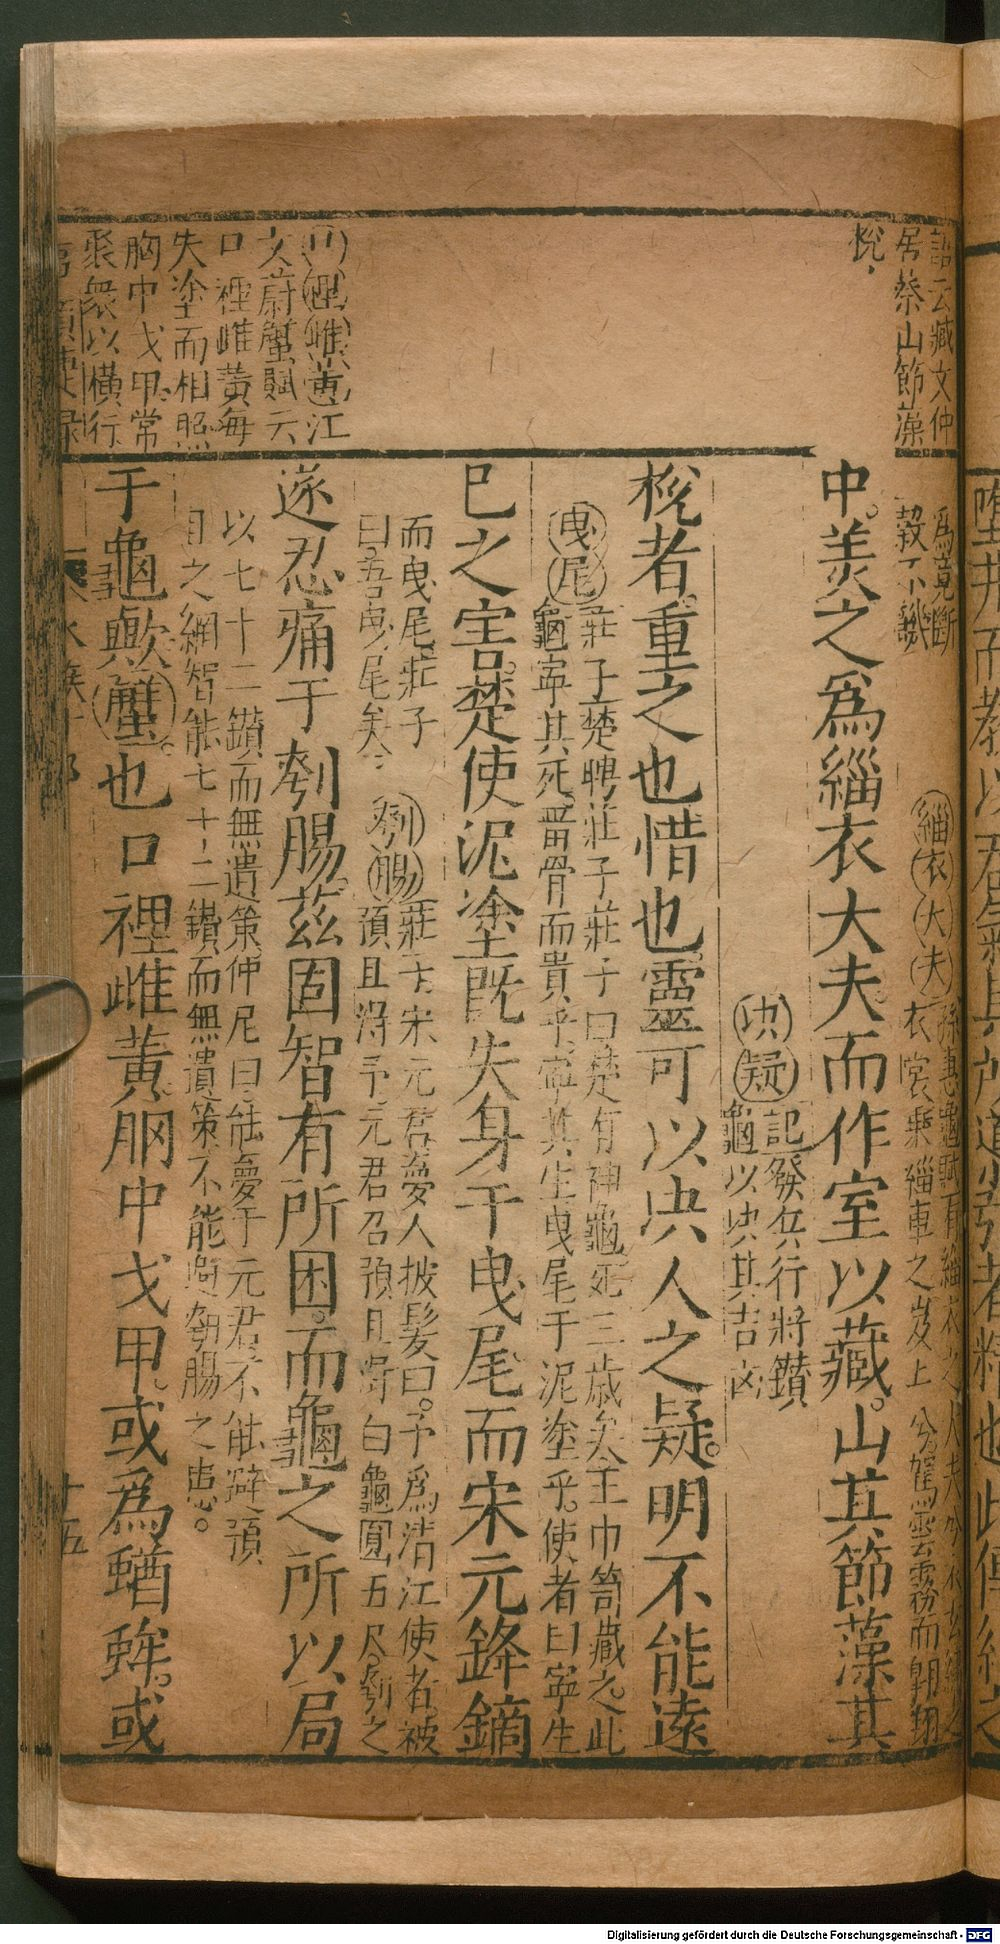 語云臧文仲
居蔡山節藻
梲
口裡雌黃江
文蔚蟹賦云
口裡雌黃每
失塗而相照
胸中戈甲常
聚衆以橫行
爲竟斷
穀不譏
緇衣大夫孫惠龜賦有緇衣之大夫兮衣玄繡之
衣裳乘輜車之岌上兮駕雲霧而翺翔
中羙之爲緇衣大夫而作室以藏山其節藻其
梲者重之也惜也靈可以决人之疑明不能遠
决疑記發兵行將鑚
龜以决其吉凶
曳尾莊子楚聘莊子莊子曰楚有神龜死三歲矣王巾笥藏之此
龜寧其死留骨而貴乎寧其生曳尾于泥塗乎使者曰寧生
巳之害楚使泥塗既失身于曳尾而宋元鋒鏑
而曳尾莊子
曰吾曳尾矣
刳腸莊子宋元君夢人披髮曰予爲淸江使者被
預且得予元君召預且得白龜圓五尺刳之
遂忍痛于刳腸茲固智有所困而龜之所以局
以七十二鑚而無遺策仲尼曰能夢于元君不能避預
且之網智能七十二鑚而無遺策不能避刳腸之患
于龜歟蟹也口裡雌黃胸中戈甲或爲蝤蛑或
水族
十五
Digitalisierung gefördert durch die Deutsche Forschungsgemeinschaft - DFG